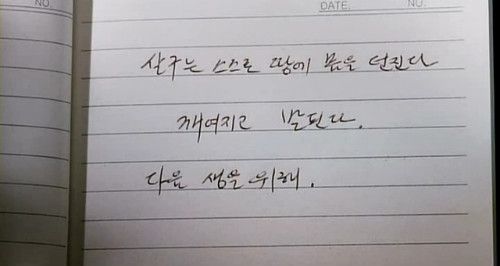 NO.
DATE.
NO.
살구는 스스로 땅에 몸을 던진다
깨여지고 밟힌다.
다음 생을 위해.